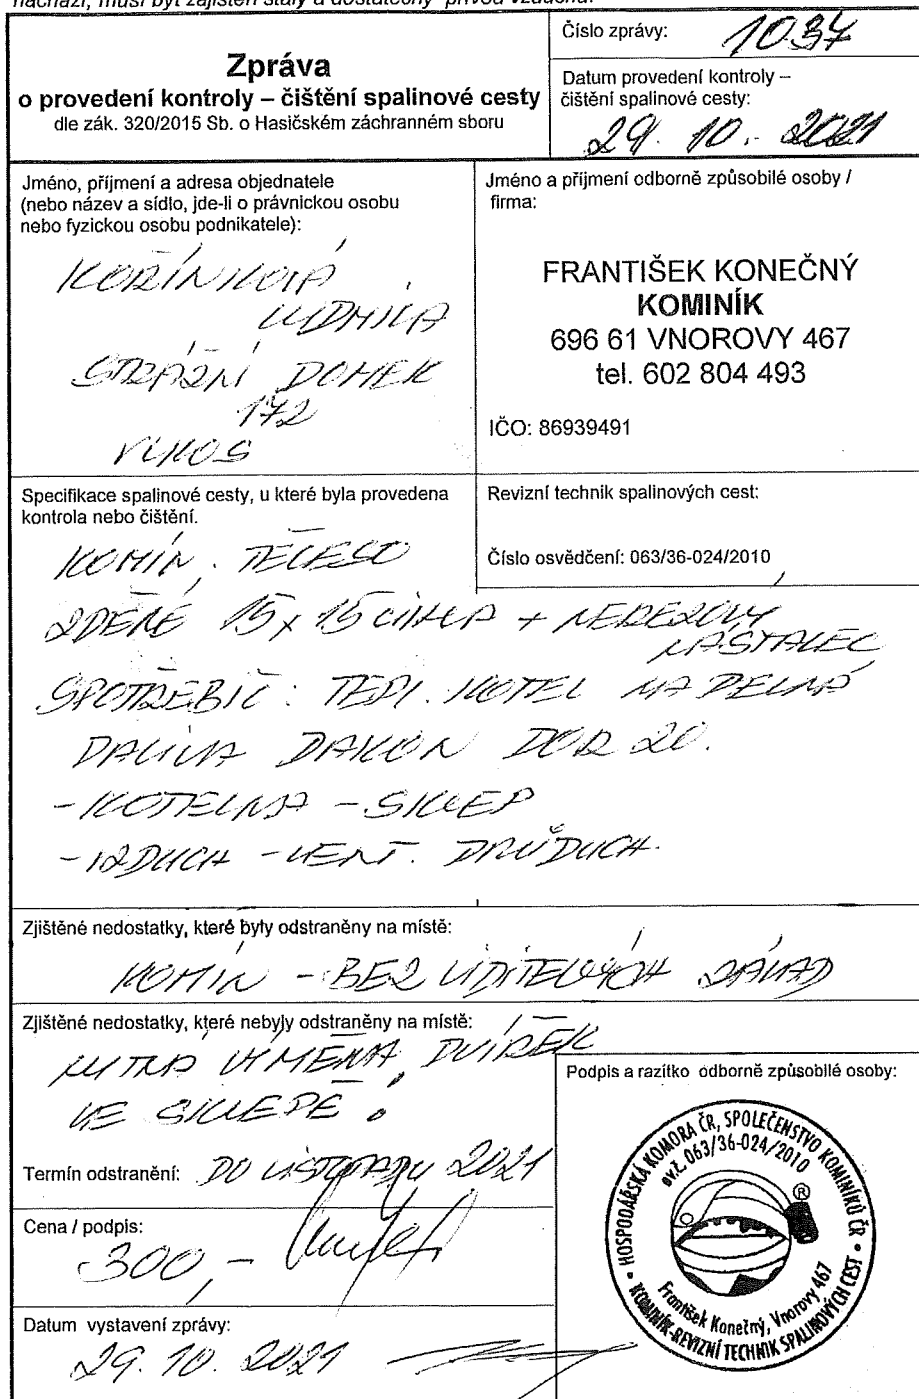 nachází, musí být zajištěn stálý a dostatečný přívod vzduchu.
Zpráva
o provedení kontroly – čištění spalinové cesty
dle zák. 320/2015 Sb. o Hasičském záchranném sboru
Číslo zprávy: 1034
Datum provedení kontroly –
čištění spalinové cesty:
29. 10. 2021
Jméno, příjmení a adresa objednatele
(nebo název a sídlo, jde-li o právnickou osobu
nebo fyzickou osobu podnikatele):
KOŘÍNKOVÁ
LUDMILA
STRÁŽNÍ DOMEK
172
VLKOŠ
Jméno a příjmení odborně způsobilé osoby /
firma:
FRANTIŠEK KONEČNÝ
KOMINÍK
696 61 VNOROVY 467
tel. 602 804 493
IČO: 86939491
Specifikace spalinové cesty, u které byla provedena
kontrola nebo čištění.
Revizní technik spalinových cest:
Číslo osvědčení: 063/36-024/2010
KOMÍN, TĚLESO
ZDĚNÉ 15x15 CIHLA + NEREZOVÝ
NÁSTAVEC
SPOTŘEBIČ: TEPL. KOTEL NA PEVNÁ
PALIVA DAKON DOR 20.
- KOTELNA - SKLEP
- VZDUCH - VENT. PRŮDUCH.
Zjištěné nedostatky, které byly odstraněny na místě:
KOMÍN - BEZ VIDITELNÝCH ZÁVAD
Zjištěné nedostatky, které nebyly odstraněny na místě:
NUTNÁ VÝMĚNA DVÍŘEK
VE SKLEPĚ!
Termín odstranění: DO LISTOPADU 2021
Podpis a razítko odborně způsobilé osoby:
Cena / podpis:
300,-
Datum vystavení zprávy:
29. 10. 2021
HOSPODÁŘSKÁ KOMORA ČR, SPOLEČENSTVO KOMINÍKŮ ČR
ov.č. 063/36-024/2010
®
František Konečný, Vnorovy 467
KOMINÍK-REVIZNÍ TECHNIK SPALINOVÝCH CEST